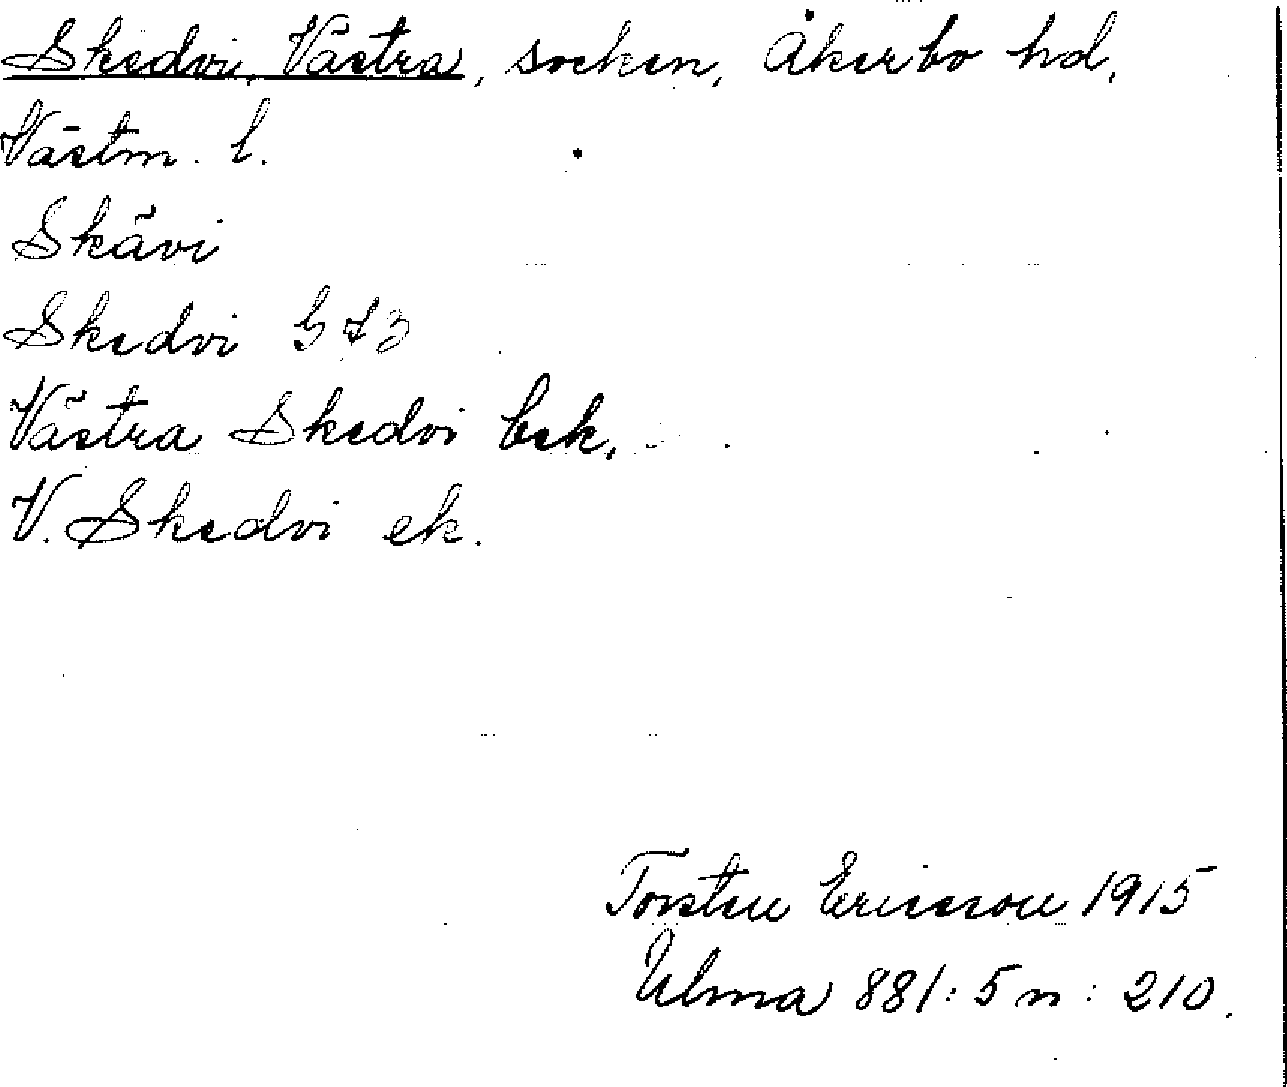 Skedvi, Västra, socken, Åkerbo hd,
Västm. l.
Skävi
Skedvi
Västra Skedvi bek.
V. Skedvi ek.
Torsten Ericsson 1915
Ulma 881:5 n: 210.